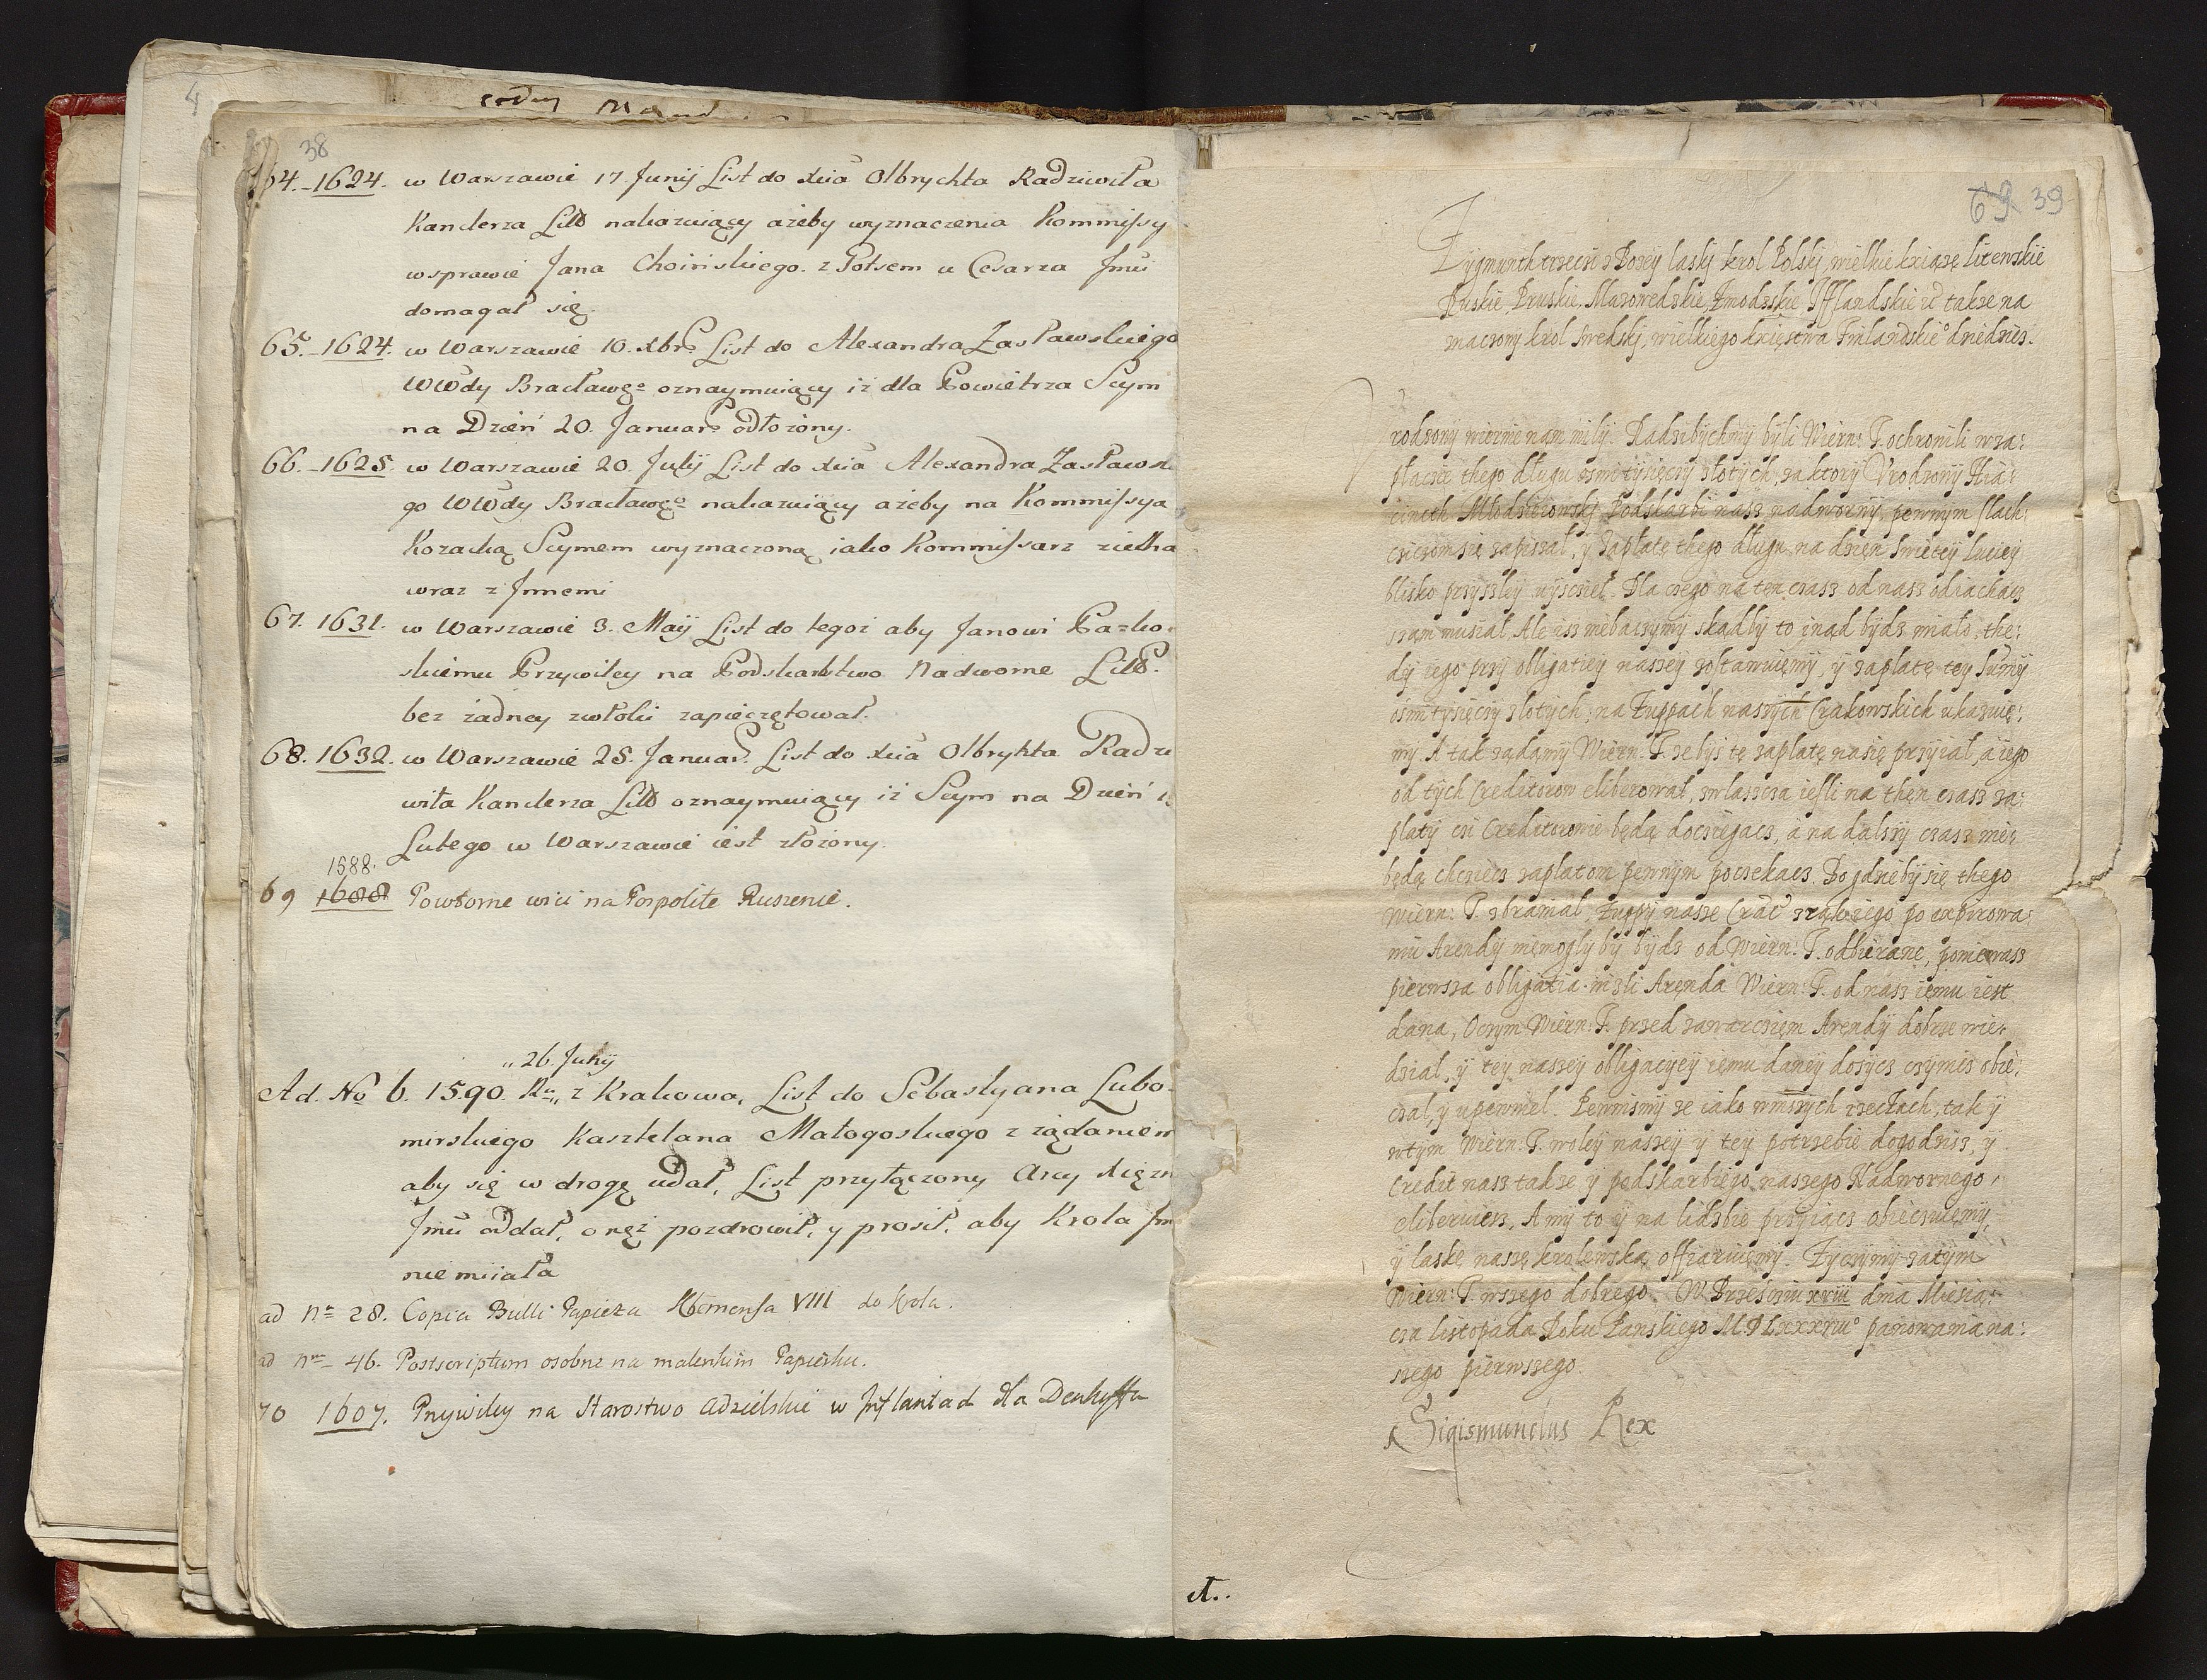 38
64. 1624. w Warszawie 17. Junij List do Xcia Olbrychta Radziwiła
Kanclerza Litt nakazuiący ażeby wyznaczenia Kommissyi
wsprawie Jana Choińskiego z Potsem u Cesarza Jmci
domagał się.
65. 1624. w Warszawie 10. Xbrs List do Alexandra Zasławskiego
WWdy Bracławgo oznaymuiący iż dla Powietrza Seym
na Dzień 20. Januar. odłożony.
66. 1625. w Warszawie 20. Julij List do Xcia Alexandra Zasławski
go WWdy Bracławgo nakazuiący ażeby na Kommissya
Kozacką Seymem wyznaczoną iako Kommissarz ziechał
wraz z Jnnemi
67. 1631. w Warszawie 3. Maij List do tegoż aby Janowi Pa=ko=
skiemu Przywiley na Podskarbstwo Nadworne Litt.
bez żadney zwłoki zapieczętował.
68. 1632. w Warszawie 25. Januar. List do Xcia Olbrykta Radzi
wiła Kanclerza Litt oznaymuiący iż Seym na Dzień
Lutego w Warszawie iest złożony.
1588.
69 1688 Powtorne wici na Pospolite Ruszenie.
,, 26. Julij
Ad. No 6. 1590. Ru,, z Krakowa, List do Sebastyana Lubo=
mirskiego Kasztelana Małogoskiego z żądaniem
aby się w drogę udał, List przyłączony Arcy Xiężn
Jmci oddał, oraz pozdrowił, y prosił, aby Krola Jm
nie miiała
ad nr 28. Copia Bulli Papieża Klemensa VIII do Krola.
ad nr 46. Postscriptum osobne na malenkim Papierku.
70 1607. Przywiley na Starostwo Adzielskie w Inflantach dla Denhoffa
69 39
Zygmunth trzeci z Bozey laski krol Polski, wielkie kxiąże litewskie
Ruskie, Pruskie, Mazowedzkie, Zmodzskie Ifflandskie etc takze na
znaczony krol Swedski, wielkiego kxięstwa Finlandskiego dziedzicz.
rodzony wiernie nam miły. Radzibychmy byli Wiern: T. ochronili wza:
płacie thego długu osmi tysięczy złotych, za ktory Vrodzony Hia:
cinth Młodziiowski Podskarbi nasz nadworny, pewnym slach:
czicom się zapiszał, y zapłatę thego długu na dzięn Swietey Luciey
blisko przyszley uysciel. Dla czego na ten czasz od nasz odiachacz
szam musiał, Ale isz niebaczymy skądby to inąd bydz miało, the:
dy iego przy obligatiey naszey zostawuiemy, y zapłatę tey Summy
osmi tysięczy złotych, na Zuppach naszych Crakowskich ukazuię:
my. A tak ządamy Wiern: T. ze bys tę zapłatę nasię przyiał, a iego
od tych Creditorow eliberował, zwlascza iesli na then czasz za:
płaty czi Creditorowie będą doczięgacz, a na dalszy czasz nie
będą chczięcz zaplatom pewnym poczekacz. Bo gdzieby się thego
Wiern: T. zbraniał, Zuppy nasze Crac. z rąk iego po expirowa:
niu Arendy niemogly by bydz od Wiern: T. odbierane, poniewasz
pierwsza obligatia nizli Aręnda Wiern: T. od nasz iemu iest
dana, Oczym Wiern: T. przed zawarcziem Aręndy dobrze wie:
dział, y tey naszey obligacyey iemu daney dosycz czynicz obie:
czał, y upewnieł. Pewnismy ze iako winszych rzeczach, tak y
wtym Wiern: T. woley naszey y tey potrzebie dogodzisz, y
Credit nasz takze y podskarbiego naszego Nadwornego,
eliberuiesz, A my to y na lidzbie przyiącz obieczuiemy,
y laske naszę krolewską offiaruiemy. Zyczymy zatym
Wiern: T. wszego dobrego. W Brzesniu xviii dnia Miesią:
cza listopada Roku Panskiego M. D Lxxxviiiº panowania na:
szego pierwszego.
Sigismundus Rex
A..